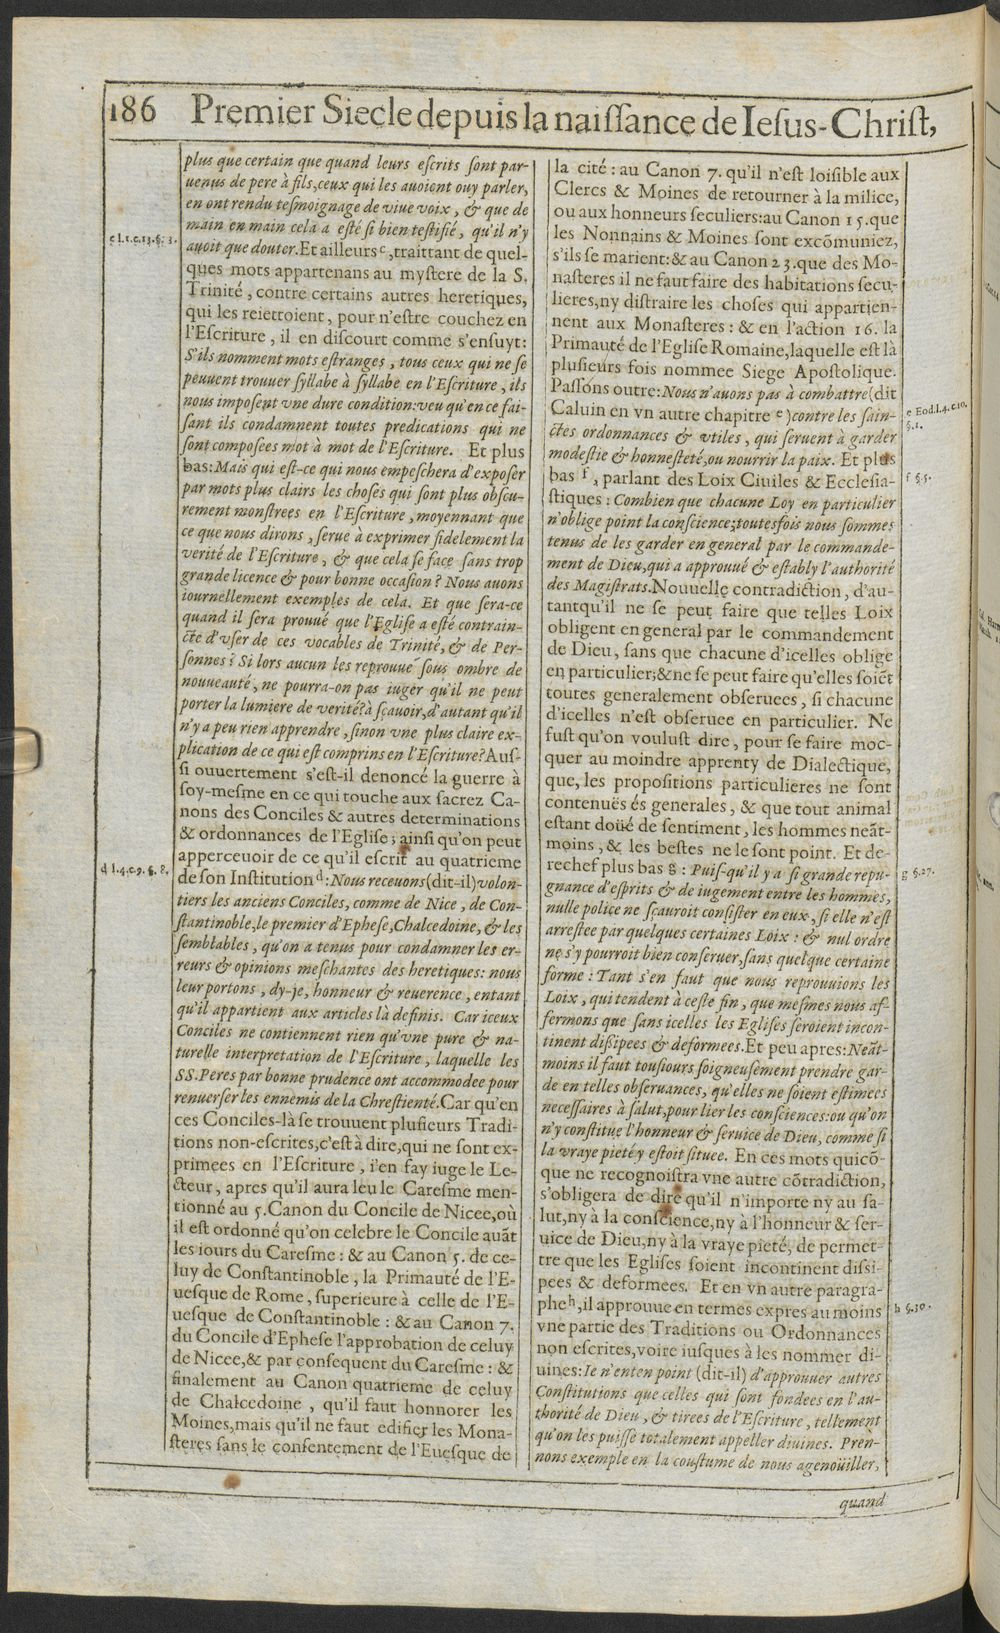 186 Premier Siecle depuis la naiſſance de Ieſus-Chriſt,
plus que certain que quand leurs eſcrits ſont par-
uenus de pere à fils, ceux qui les auoient ouy parler,
en ont rendu teſmoignage de viue voix, & que de
main en main cela a eſté ſi bien teſtifié, qu'il n'y
c l.1.c.13.§. 3.
auoit que douter. Et ailleurs c, traittant de quel-
ques mots appartenans au myſtere de la S.
Trinité, contre certains autres heretiques,
qui les reiettoient, pour n'eſtre couchez en
l'Eſcriture, il en diſcourt comme s'enſuyt:
S'ils nomment mots eſtranges, tous ceux qui ne ſe
peuuent trouuer ſyllabe à ſyllabe en l'Eſcriture, ils
nous impoſent vne dure condition: veu qu'en ce fai-
ſant ils condamnent toutes predications qui ne
ſont compoſees mot à mot de l'Eſcriture. Et plus
bas: Mais qui eſt-ce qui nous empeſchera d'expoſer
par mots plus clairs les choſes qui ſont plus obſcu-
rement monſtrees en l'Eſcriture, moyennant que
ce que nous dirons, ſerue à exprimer fidelement la
verité de l'Eſcriture, & que cela ſe face ſans trop
grande licence & pour bonne occaſion? Nous auons
iournellement exemples de cela. Et que ſera-ce
quand il ſera prouué que l'Egliſe a eſté contrain-
cte d'vſer de ces vocables de Trinité, & de Per-
ſonnes? Si lors aucun les reprouue ſous ombre de
nouueauté, ne pourra-on pas iuger qu'il ne peut
porter la lumiere de verité? à ſçauoir, d'autant qu'il
n'y a peu rien apprendre, ſinon vne plus claire ex-
plication de ce qui eſt comprins en l'Eſcriture? Auſ-
ſi ouuertement s'eſt-il denoncé la guerre à
ſoy-meſme en ce qui touche aux ſacrez Ca-
nons des Conciles & autres determinations
& ordonnances de l'Egliſe; ainſi qu'on peut
apperceuoir de ce qu'il eſcrit au quatrieme
d l.4.c.9. §. 8.
de ſon Inſtitution d: Nous receuons (dit-il) volon-
tiers les anciens Conciles, comme de Nice, de Con-
ſtantinoble, le premier d'Epheſe, Chalcedoine, & les
ſemblables, qu'on a tenus pour condamner les er-
reurs & opinions meſchantes des heretiques: nous
leur portons, dy-je, honneur & reuerence, entant
qu'il appartient aux articles là definis. Car iceux
Conciles ne contiennent rien qu'vne pure & na-
turelle interpretation de l'Eſcriture, laquelle les
SS. Peres par bonne prudence ont accommodee pour
renuerſer les ennemis de la Chreſtienté. Car qu'en
ces Conciles-là ſe trouuent pluſieurs Tradi-
tions non-eſcrites, c'eſt à dire, qui ne ſont ex-
primees en l'Eſcriture, i'en fay iuge le Le-
cteur, apres qu'il aura leu le Careſme men-
tionné au 5. Canon du Concile de Nicee, où
il eſt ordonné qu'on celebre le Concile auãt
les iours du Careſme: & au Canon 5. de ce-
luy de Conſtantinoble, la Primauté de l'E-
ueſque de Rome, ſuperieure à celle de l'E-
ueſque de Conſtantinoble: & au Canon 7.
du Concile d'Epheſe l'approbation de celuy
de Nicee, & par conſequent du Careſme: &
finalement au Canon quatrieme de celuy
de Chalcedoine, qu'il faut honnorer les
Moines, mais qu'il ne faut edifier les Mona-
ſteres ſans le conſentement de l'Eueſque de
la cité: au Canon 7. qu'il n'eſt loiſible aux
Clercs & Moines de retourner à la milice,
ou aux honneurs ſeculiers: au Canon 15. que
les Nonnains & Moines ſont excõmuniez,
s'ils ſe marient: & au Canon 23. que des Mo-
naſteres il ne faut faire des habitations ſecu-
lieres, ny diſtraire les choſes qui appartien-
nent aux Monaſteres: & en l'action 16. la
Primauté de l'Egliſe Romaine, laquelle eſt là
pluſieurs fois nommee Siege Apoſtolique.
Paſſons outre: Nous n'auons pas à combattre (dit
Caluin en vn autre chapitre e) contre les ſain-
e Eod.l.4.c.10.
§.1.
ctes ordonnances & vtiles, qui ſeruent à garder
modeſtie & honneſteté, ou nourrir la paix. Et plus
bas f, parlant des Loix Ciuiles & Eccleſia-
f §.5.
ſtiques: Combien que chacune Loy en particulier
n'oblige point la conſcience; toutesfois nous ſommes
tenus de les garder en general par le commande-
ment de Dieu, qui a approuué & eſtably l'authorité
des Magiſtrats. Nouuelle contradiction, d'au-
tant qu'il ne ſe peut faire que telles Loix
obligent en general par le commandement
de Dieu, ſans que chacune d'icelles oblige
en particulier; & ne ſe peut faire qu'elles ſoiẽt
toutes generalement obſeruees, ſi chacune
d'icelles n'eſt obſeruee en particulier. Ne
fuſt qu'on vouluſt dire, pour ſe faire moc-
quer au moindre apprenty de Dialectique,
que, les propoſitions particulieres ne ſont
contenuës és generales, & que tout animal
eſtant doüé de ſentiment, les hommes neãt-
moins, & les beſtes ne le ſont point. Et de-
rechef plus bas g: Puiſ-qu'il y a ſi grande repu-
g §.27.
gnance d'eſprits & de iugement entre les hommes,
nulle police ne ſçauroit conſiſter en eux, ſi elle n'eſt
arreſtee par quelques certaines Loix: & nul ordre
ne s'y pourroit bien conſeruer, ſans quelque certaine
forme: Tant s'en faut que nous reprouuions les
Loix, qui tendent à ceſte fin, que meſmes nous af-
fermons que ſans icelles les Egliſes ſeroient incon-
tinent diſſipees & deformees. Et peu apres: Neãt-
moins il faut touſiours ſoigneuſement prendre gar-
de en telles obſeruances, qu'elles ne ſoient eſtimees
neceſſaires à ſalut, pour lier les conſciences: ou qu'on
n'y conſtitue l'honneur & ſeruice de Dieu, comme ſi
la vraye pieté y eſtoit ſituee. En ces mots quicõ-
que ne recognoiſtra vne autre cõtradiction,
s'obligera de dire qu'il n'importe ny au ſa-
lut, ny à la conſcience, ny à l'honneur & ſer-
uice de Dieu, ny à la vraye pieté, de permet-
tre que les Egliſes ſoient incontinent diſſi-
pees & deformees. Et en vn autre paragra-
phe h, il approuue en termes expres au moins
h §.30.
vne partie des Traditions ou Ordonnances
non eſcrites, voire iuſques à les nommer di-
uines: Ie n'enten point (dit-il) d'approuuer autres
Conſtitutions que celles qui ſont fondees en l'au-
thorité de Dieu, & tirees de l'Eſcriture, tellement
qu'on les puiſſe totalement appeller diuines. Pren-
nons exemple en la couſtume de nous agenoüiller,
quand